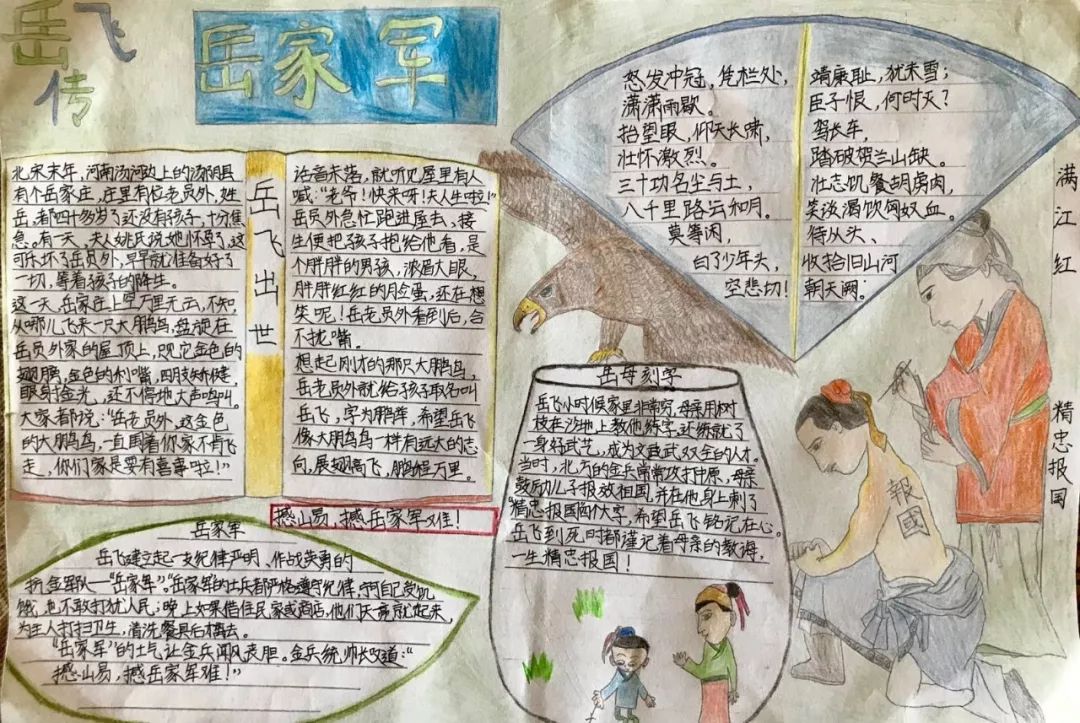 岳飞
传
岳家军
北宋末年，河南汤河边上的汤阴县
有个岳家庄，庄里有位老员外，姓
岳，都四十多岁了还没有孩子，十分焦
急。有一天，夫人姚氏说她怀孕了，这
可乐坏了岳员外，早早就准备好了
一切，等着孩子的降生。
这一天，岳家庄上空万里无云，不知
从哪儿飞来一只大鹏鸟，盘旋在
岳员外家的屋顶上，只见它金色的
翅膀，金色的利嘴，四肢矫健，
眼身金光，还不停地大声鸣叫。
大家都说：“岳老员外，这金色
的大鹏鸟，一直围着你家不肯飞
走，你们家是要有喜事啦！”
岳飞出世
话音未落，就听见屋里有人
喊：“老爷！快来呀！夫人生啦！”
岳员外急忙跑进屋去，接
生便把孩子抱给他看，是
个胖胖的男孩，浓眉大眼，
胖胖红红的脸蛋，还在想
笑呢！岳老员外看到后，合
不拢嘴。
想起刚才的那只大鹏鸟，
岳老员外就给孩子取名叫
岳飞，字为鹏举，希望岳飞
像大鹏鸟一样有远大的志
向，展翅高飞，鹏程万里。
撼山易，撼岳家军难！
岳家军
岳飞建立起一支纪律严明、作战英勇的
抗金军队—“岳家军”。“岳家军的士兵都严格遵守纪律，宁可自己受饥
饿，也不敢打扰人民；晚上如果借住民家或商店，他们天亮就起来，
为主人打扫卫生，清洗餐具后才离去。
“岳家军”的士气让金兵闻风丧胆。金兵统帅长叹道：“
撼山易，撼岳家军难！”
怒发冲冠，凭栏处，
潇潇雨歇。
抬望眼，仰天长啸，
壮怀激烈。
三十功名尘与土，
八千里路云和月。
莫等闲，
白了少年头，
空悲切！
靖康耻，犹未雪；
臣子恨，何时灭？
驾长车，
踏破贺兰山缺。
壮志饥餐胡虏肉，
笑谈渴饮匈奴血。
待从头、
收拾旧山河
朝天阙。
满江红
精忠报国
岳母刻字
岳飞小时候家里非常穷，母亲用树
枝在沙地上教他练字，还练就了
一身好武艺，成为文武双全的人才。
当时，北方的金兵常常攻打中原，母亲
鼓励儿子报效祖国，并在他身上刺了
“精忠报国四个大字，希望岳飞铭记在心
岳飞到死时都谨记着母亲的教诲，
一生精忠报国！
報
國